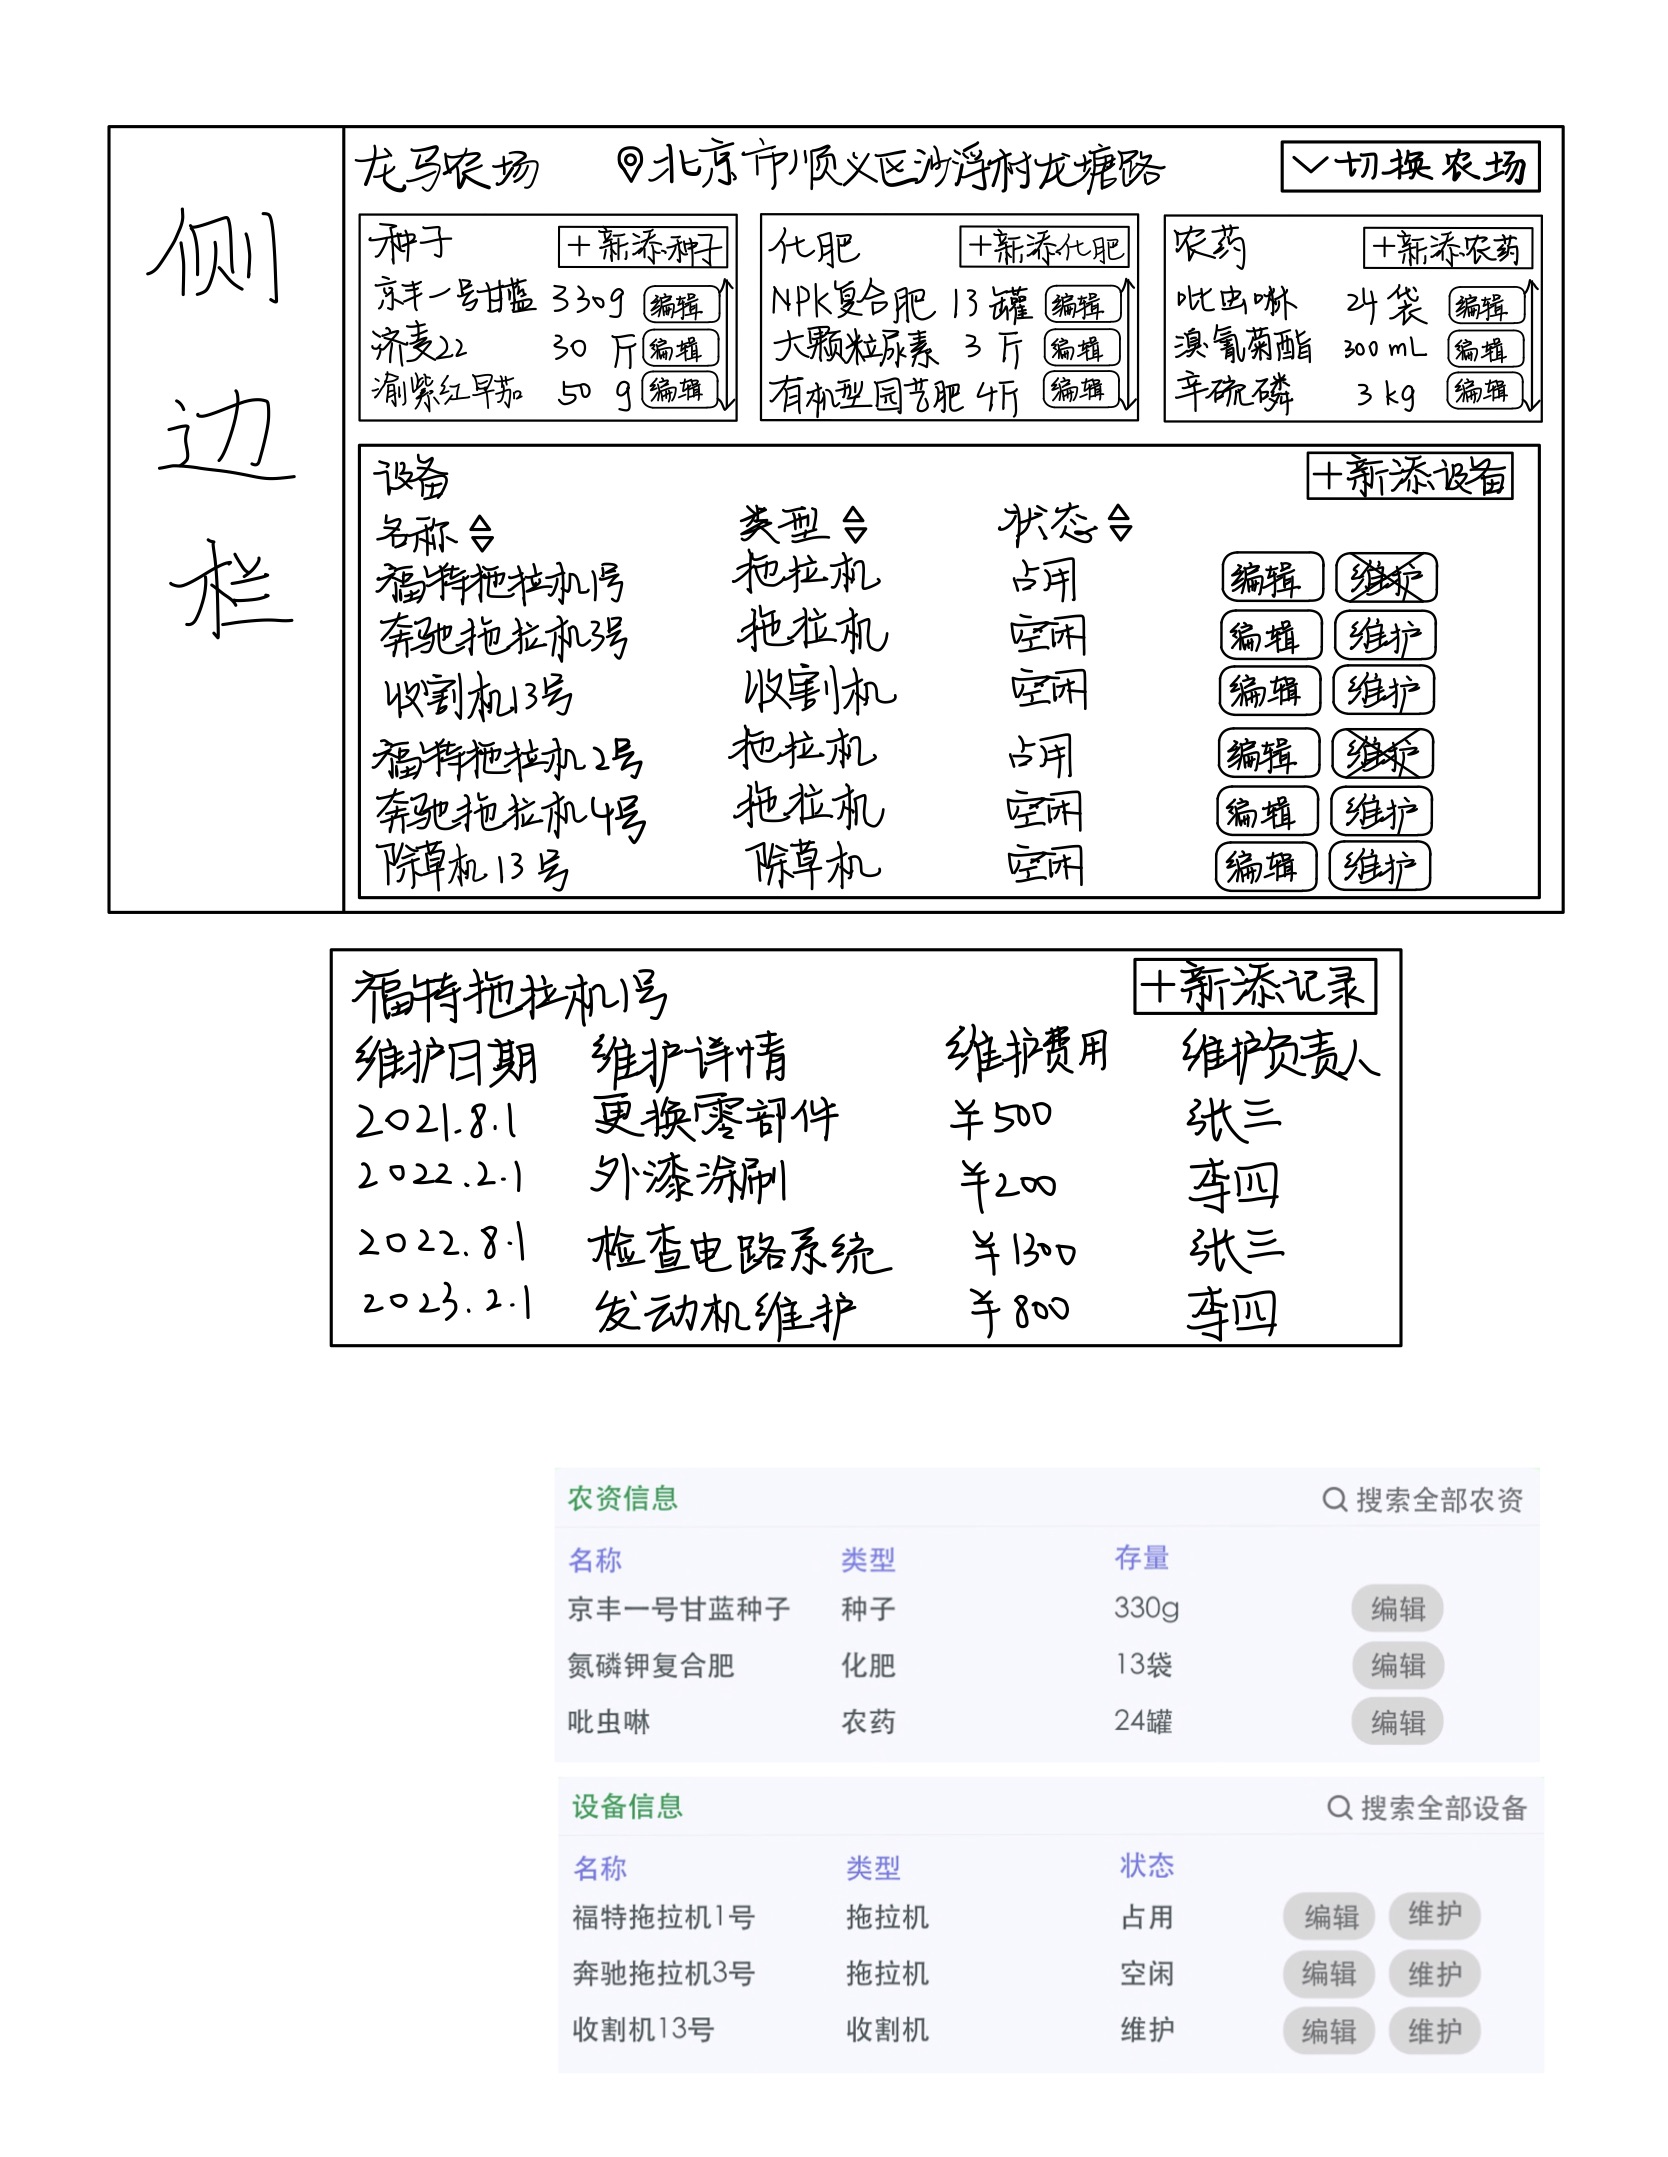 侧边栏
龙马农场 北京市顺义区沙浮村龙塘路 切换农场
种子 +新添种子
京丰一号甘蓝 330g 编辑
济麦22 30 斤 编辑
渝紫红早茄 50 g 编辑
化肥 +新添化肥
NPK复合肥 13 罐 编辑
大颗粒尿素 3 斤 编辑
有机型园艺肥 4斤 编辑
农药 +新添农药
吡虫啉 24 袋 编辑
溴氰菊酯 300 mL 编辑
辛硫磷 3 kg 编辑
设备 +新添设备
名称 类型 状态
福特拖拉机1号 拖拉机 占用 编辑 维护
奔驰拖拉机3号 拖拉机 空闲 编辑 维护
收割机13号 收割机 空闲 编辑 维护
福特拖拉机2号 拖拉机 占用 编辑 维护
奔驰拖拉机4号 拖拉机 空闲 编辑 维护
除草机13号 除草机 空闲 编辑 维护
福特拖拉机1号 +新添记录
维护日期 维护详情 维护费用 维护负责人
2021.8.1 更换零部件 ¥500 张三
2022.2.1 外漆涂刷 ¥200 李四
2022.8.1 检查电路系统 ¥1300 张三
2023.2.1 发动机维护 ¥800 李四
农资信息 搜索全部农资
名称 类型 存量
京丰一号甘蓝种子 种子 330g 编辑
氮磷钾复合肥 化肥 13袋 编辑
吡虫啉 农药 24罐 编辑
设备信息 搜索全部设备
名称 类型 状态
福特拖拉机1号 拖拉机 占用 编辑 维护
奔驰拖拉机3号 拖拉机 空闲 编辑 维护
收割机13号 收割机 维护 编辑 维护